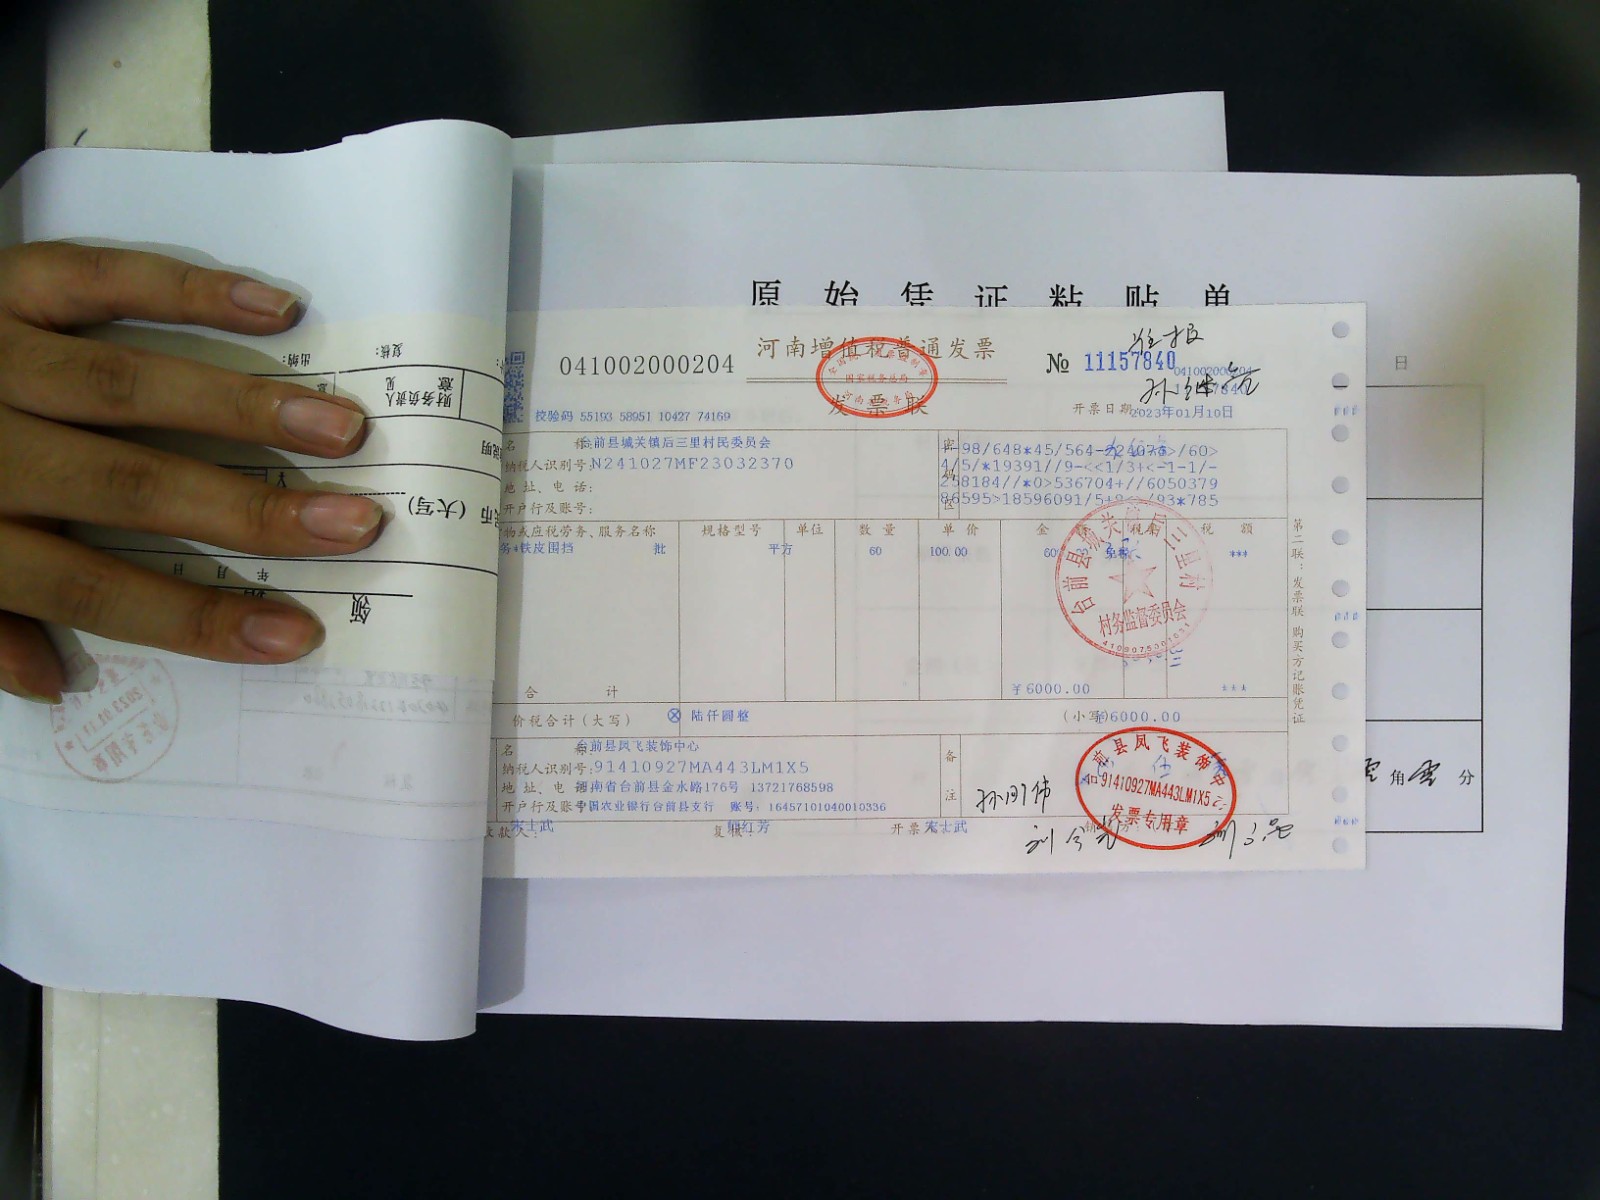 原始凭证粘贴单
041002000204
河南增值税普通发票
发票联
№ 11157840
准报
041002000204
11157840
校验码 55193 58951 10427 74169
开票日期
2023年01月10日
名 称:
台前县城关镇后三里村民委员会
纳税人识别号:N241027MF23032370
地 址、电 话:
开户行及账号:
密码区
4/5/*19391//9-<<1/3+<-1-1/-
258184//*0>536704+//6050379
物或应税劳务、服务名称 规格型号 单位 数 量 单 价 金 额 税率 税 额
务*铁皮围挡 批 平方 60 100.00 免税 ***
台前县城关镇后三里村
村务监督委员会
合 计 ¥6000.00 ***
价税合计(大写) ⊗ 陆仟圆整 (小写) 6000.00
名 称:
台前县凤飞装饰中心
纳税人识别号:91410927MA443LM1X5
地 址、电 话:
河南省台前县金水路176号 13721768598
开户行及账号:
中国农业银行台前县支行 账号:16457101040010336
备注
收款人: 宋士武 复核: 开票人: 宋士武
台前县凤飞装饰中心
91410927MA443LM1X5
发票专用章
第二联:发票联 购买方记账凭证
日
零角零分
出纳:
复核:
财务负责人意见
(大写)
年 月 日
领